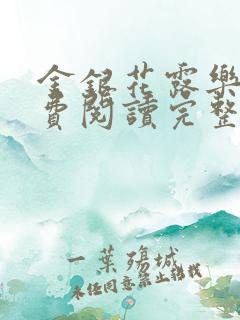 金銀花露樂
費閱讀完整
一葉殤城
未經同意禁止轉載